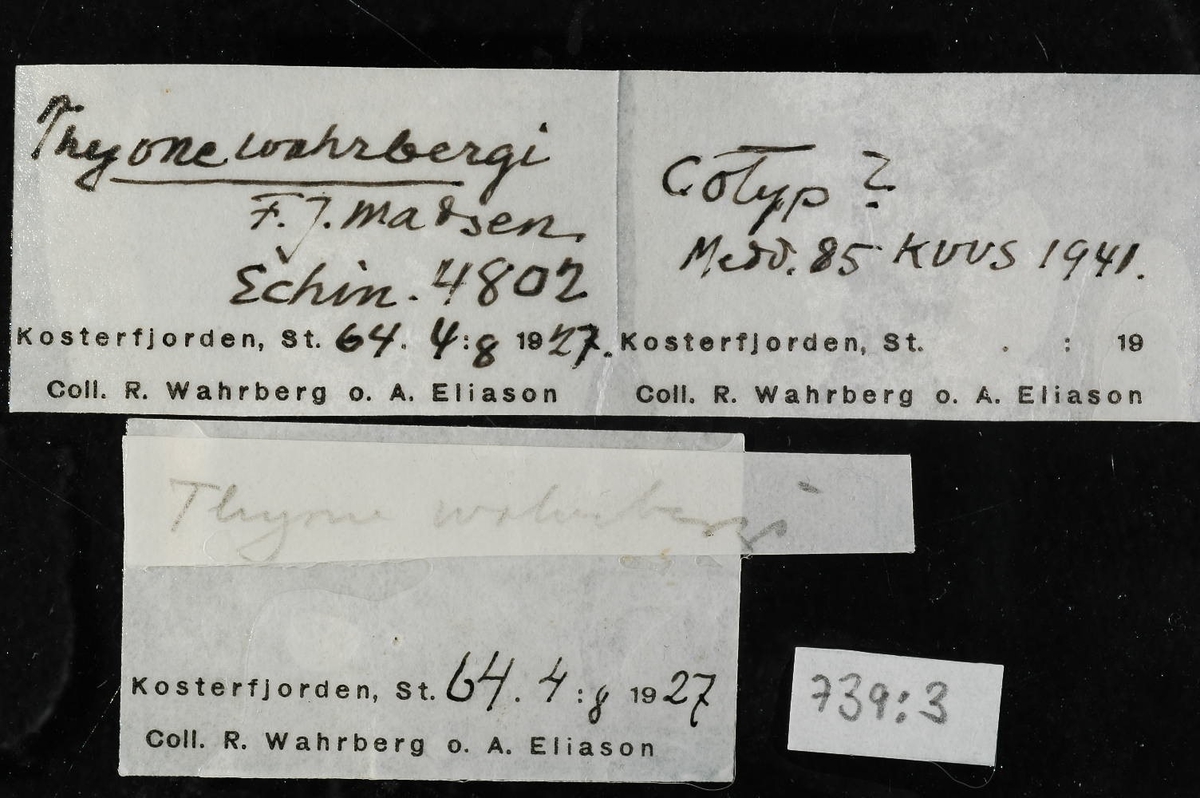 Thyone wahrbergi
F. J. Madsen.
Echin. 4802
Kosterfjorden, St. 64. 4:8 1927.
Coll. R. Wahrberg o. A. Eliason
Cotyp ?
Medd. 85 KVVS 1941.
Kosterfjorden, St. . : 19
Coll. R. Wahrberg o. A. Eliason
Thyone wahrbergi
Kosterfjorden, St. 64. 4:8 1927
Coll. R. Wahrberg o. A. Eliason
739:3